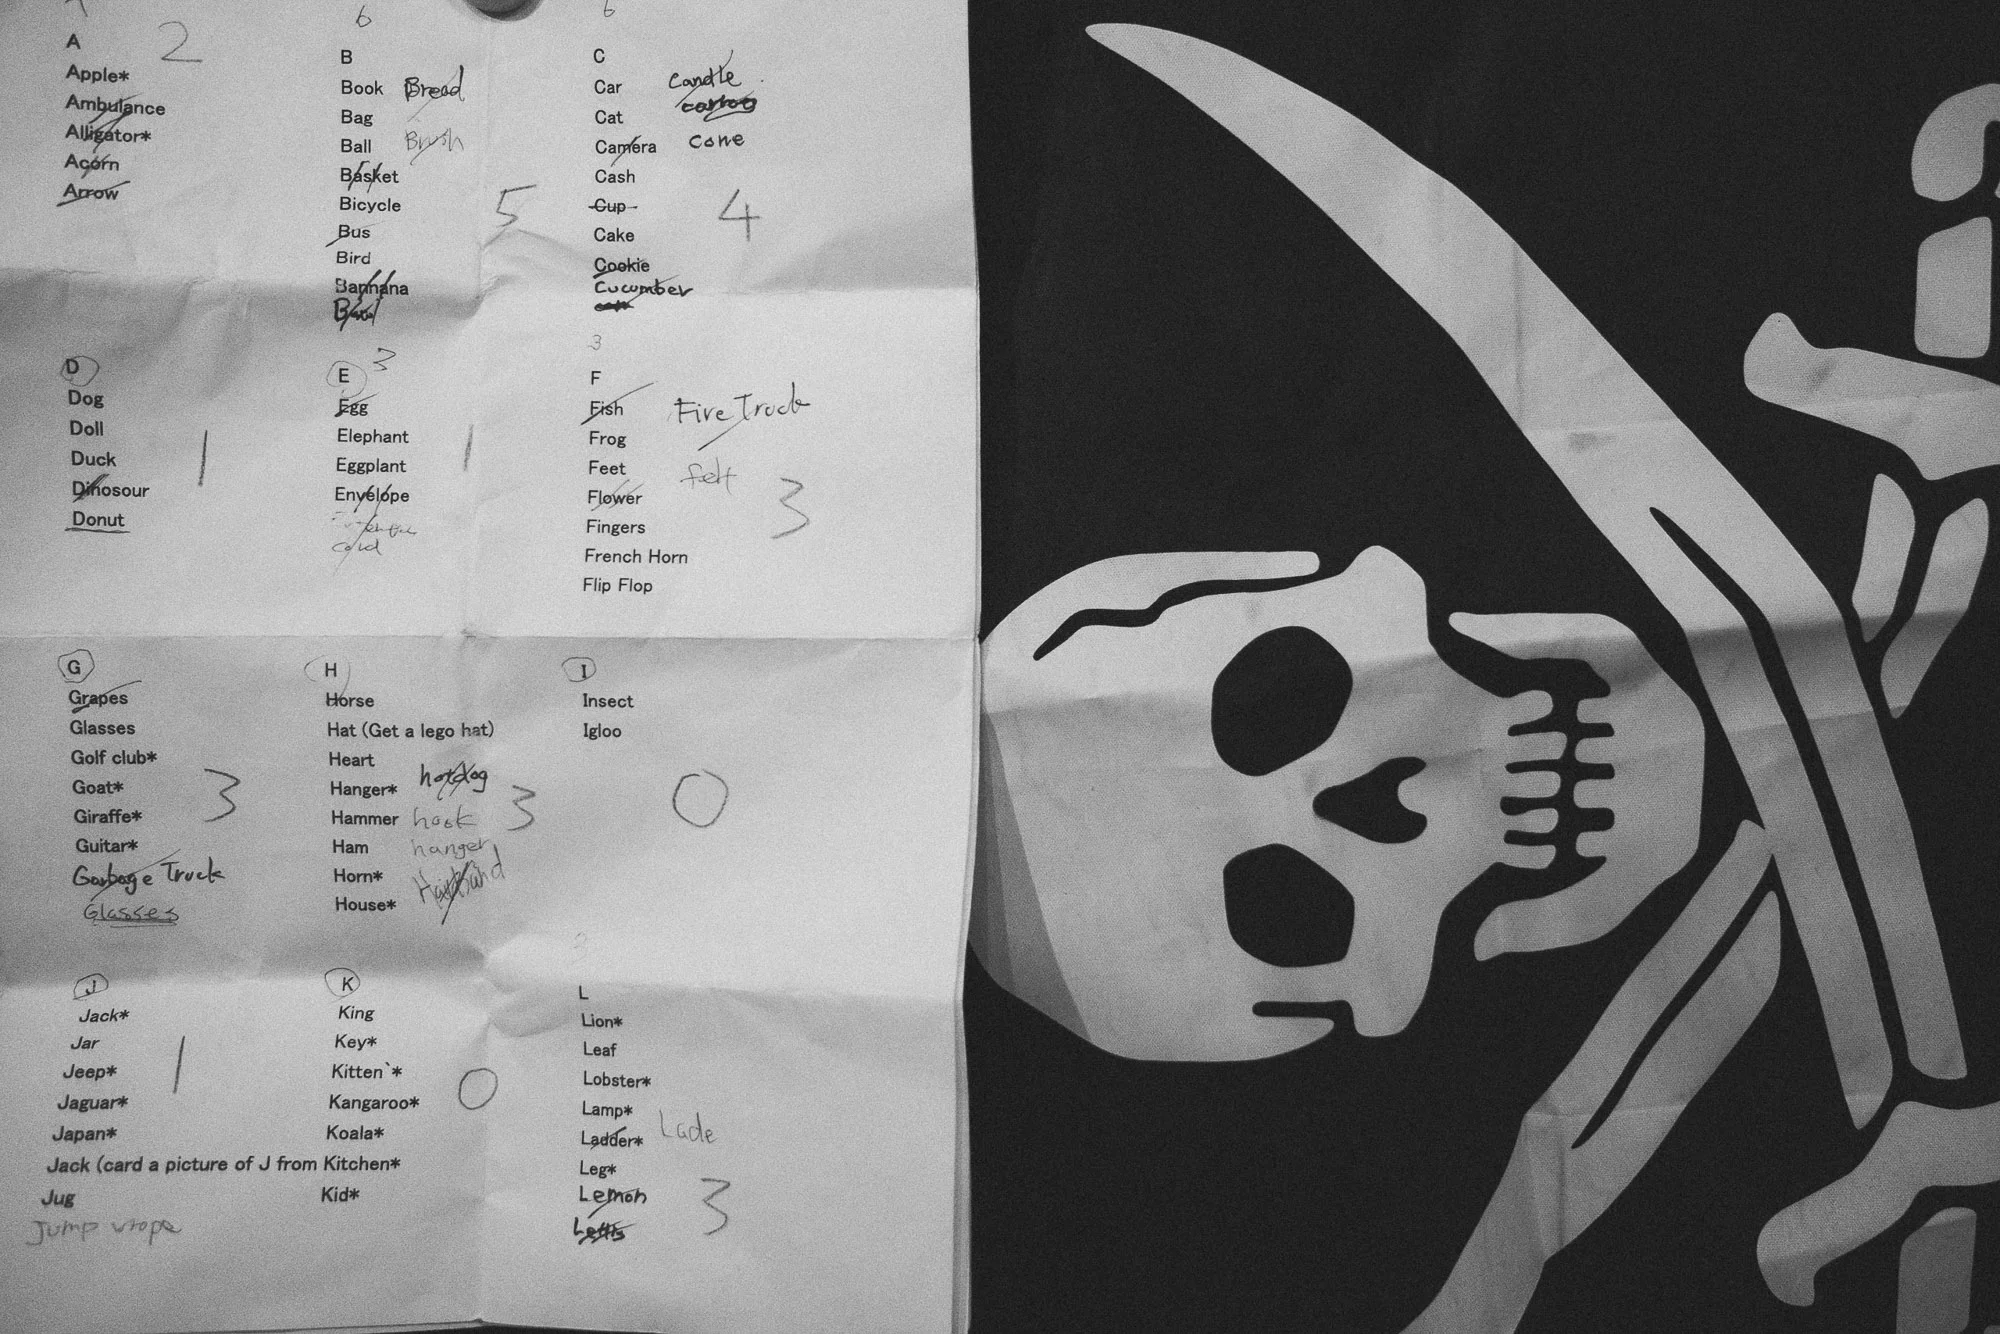 6
6
A 2
Apple*
Ambulance
Alligator*
Acorn
Arrow
B
Book Bread
Bag
Ball Brush
Basket
Bicycle 5
Bus
Bird
Bannana
C
Car Candle
Cat
Camera cone
Cash
Cup 4
Cake
Cookie
Cucumber
D
Dog
Doll
Duck 1
Dinosour
Donut
E 3
Egg
Elephant 1
Eggplant
Envelope
card
3
F
Fish Fire Truck
Frog
Feet felt
Flower 3
Fingers
French Horn
Flip Flop
G
Grapes
Glasses
Golf club*
Goat* 3
Giraffe*
Guitar*
Garbage Truck
Glasses
H
Horse
Hat (Get a lego hat)
Heart
Hanger* hotdog
Hammer hook 3
Ham hanger
Horn*
House*
I
Insect
Igloo
0
J
Jack*
Jar
Jeep* 1
Jaguar*
Japan*
Jack (card a picture of J from
Jug
Jump wrope
K
King
Key*
Kitten`* 0
Kangaroo*
Koala*
Kitchen*
Kid*
L
Lion*
Leaf
Lobster*
Lamp*
Ladder* Lade
Leg*
Lemon 3